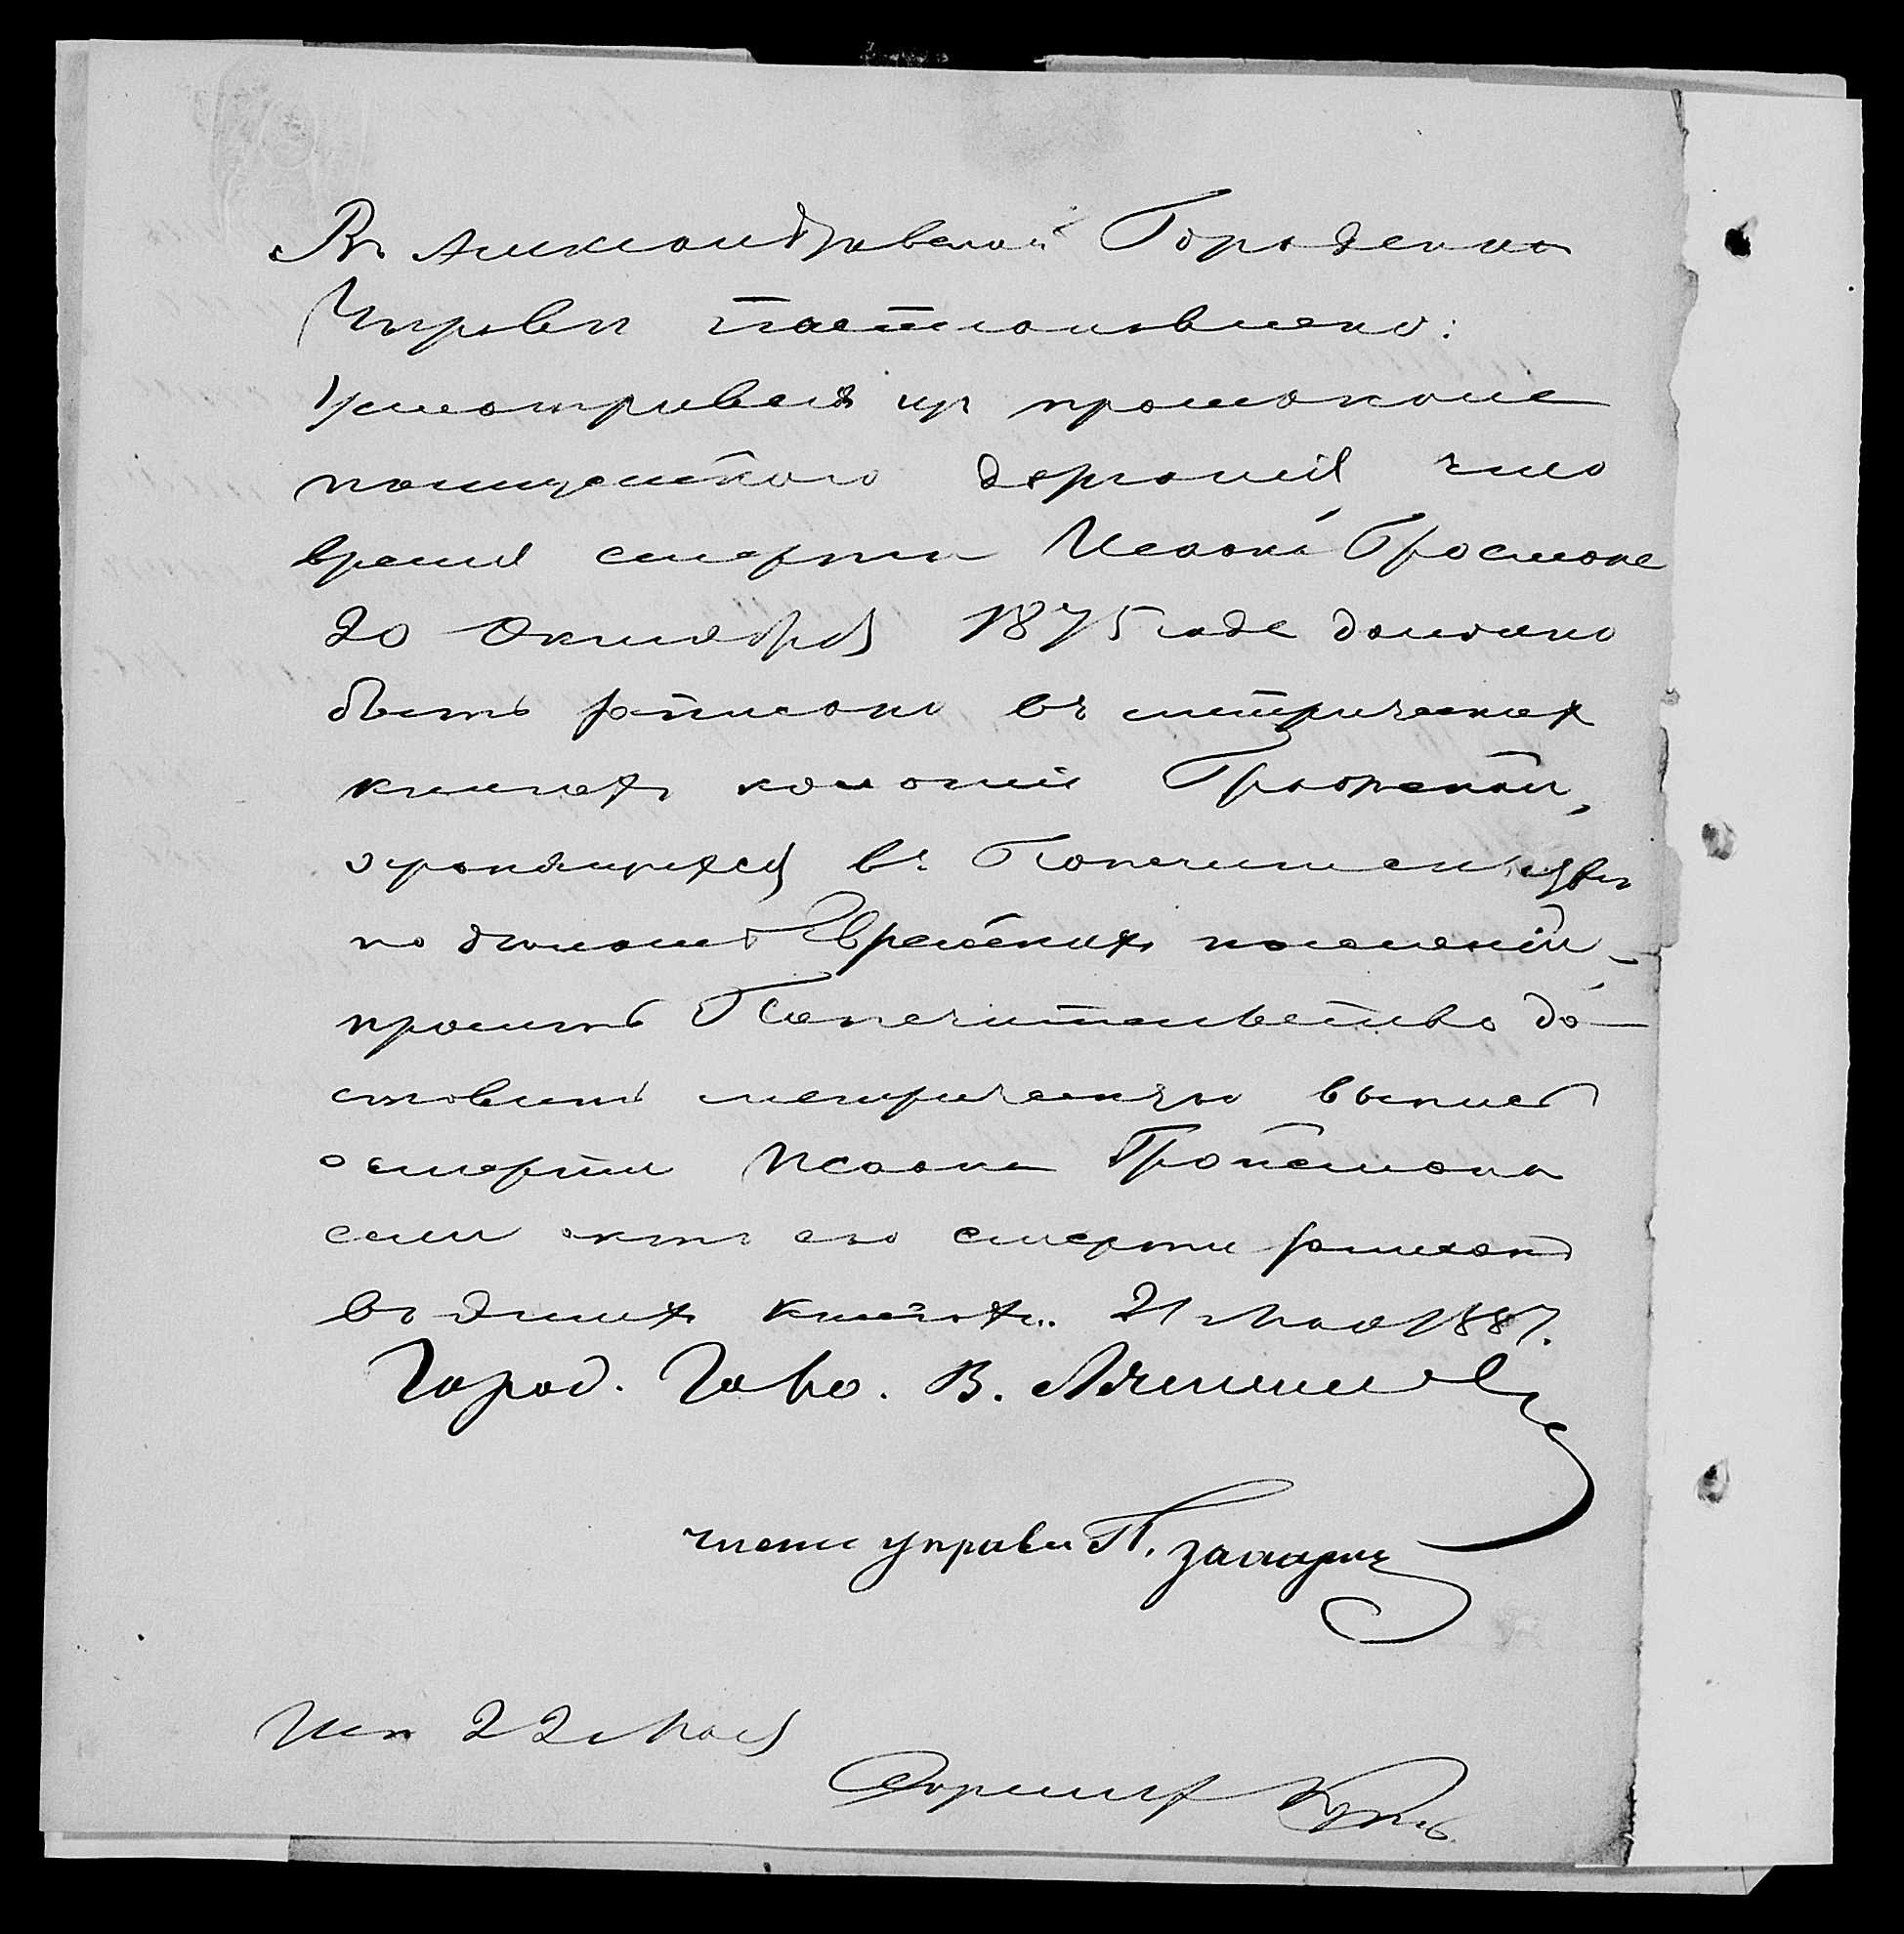 Въ Александровской Городской
Управѣ постановлено:
Усматривая изъ протокола
полицейского дознанія что
время смерти Исаака Гросмана
20 Октября 1875 года должно
быть записано въ метрическихъ
книгахъ колоніи Графской,
хранящихся въ Попечительствѣ
по дѣламъ Еврейскихъ поселеній,
просить Попечительство до-
ставить метрическую выпись
о смерти Исаака Гросмана
если актъ его смерти записанъ
въ этихъ книгахъ. 21 Мая 1887.
Город. Голова. В.
членъ управы П. Захарин
Исп 22 Мая